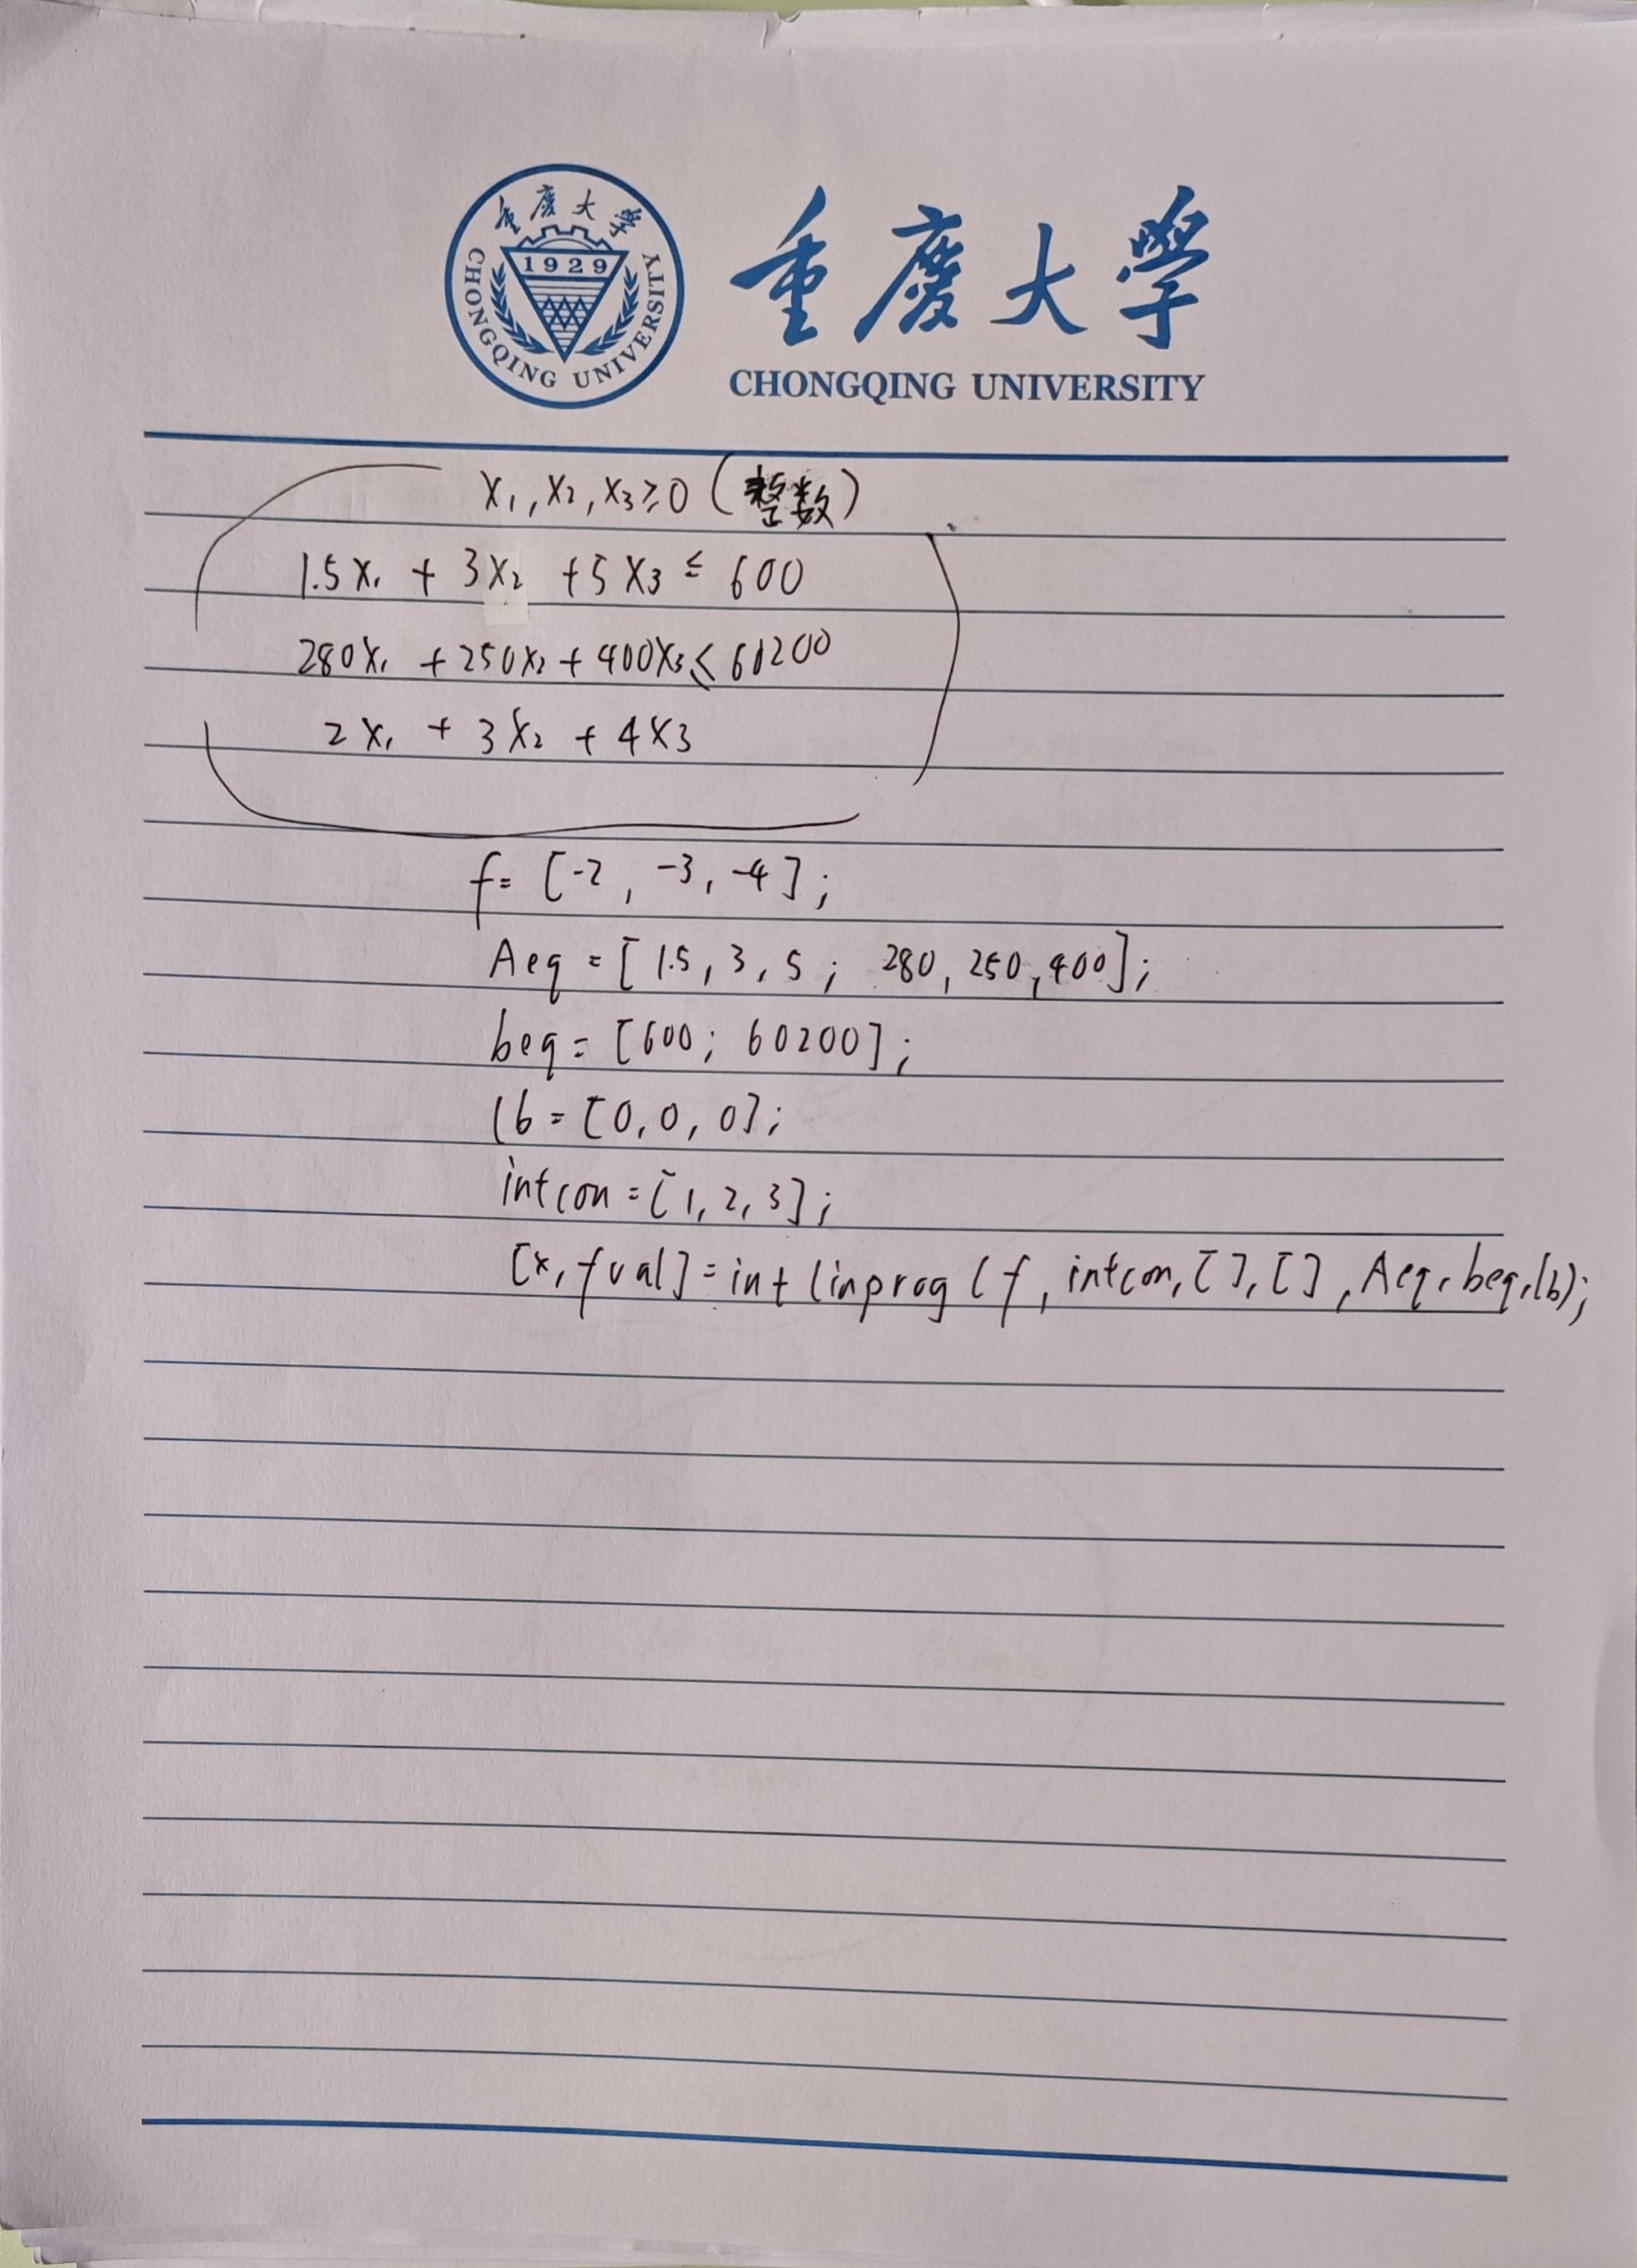 重慶大學
1929
CHONGQING UNIVERSITY
重慶大學
CHONGQING UNIVERSITY
x₁, x₂, x₃ ≥ 0 (整数)
1.5x₁ + 3x₂ + 5x₃ ≤ 600
280x₁ + 250x₂ + 400x₃ ≤ 60200
2x₁ + 3x₂ + 4x₃
f= [-2, -3, -4];
Aeq = [1.5, 3, 5; 280, 250, 400];
beq = [600; 60200];
lb = [0, 0, 0];
intcon = [1, 2, 3];
[x, fval] = intlinprog(f, intcon, [], [], Aeq, beq, lb);